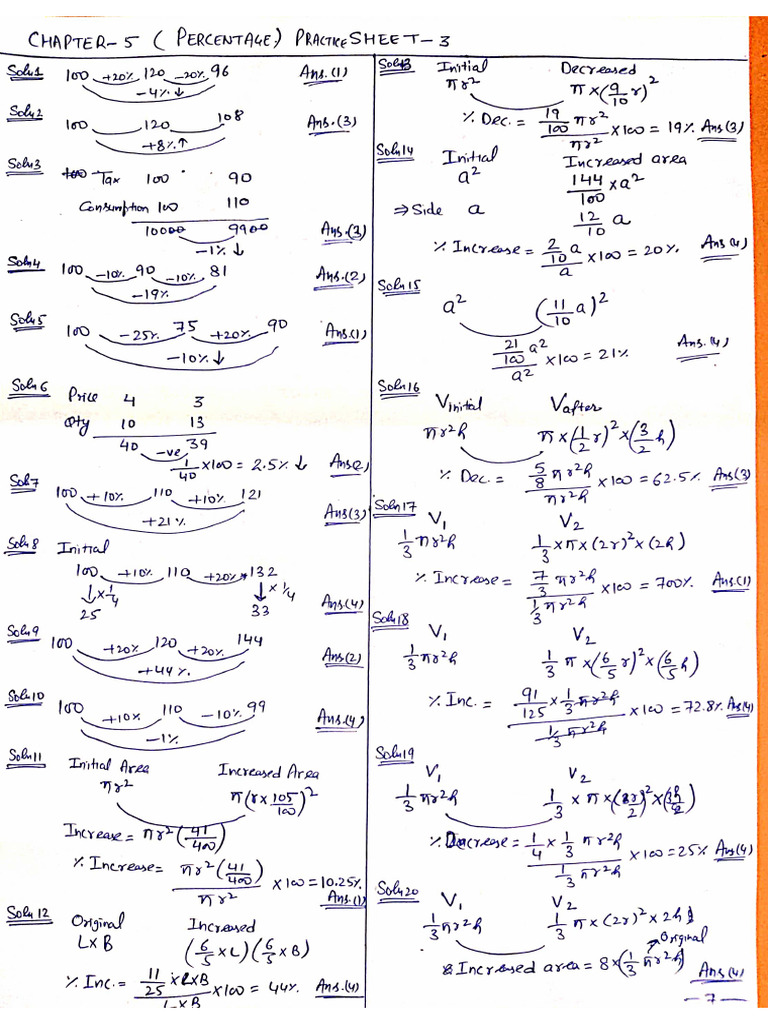 CHAPTER-5 (PERCENTAGE) PRACTICE SHEET-3
Soln1 100 +20% 120 -20% 96 Ans.(1)
-4% ↓
Soln2 100 120 108 Ans.(3)
+8% ↑
Soln3 Tax 100 90
Consumption 100 110
10000 9900 Ans.(3)
-1% ↓
Soln4 100 -10% 90 -10% 81 Ans.(2)
-19%
Soln5 100 -25% 75 +20% 90 Ans.(1)
-10% ↓
Soln6 Price 4 3
Qty 10 13
40 -ve 39
1/40 ×100 = 2.5% ↓
Sol7 100 +10% 110 +10% 121
+21% Ans(3)
Soln8 Initial
100 +10% 110 +20% 132
↓×1/4 ↓×1/4
25 33 Ans(4)
Soln9 100 +20% 120 +20% 144
+44% Ans(2)
Soln10 100 +10% 110 -10% 99
-1% Ans.(4)
Soln11 Initial Area Increased Area
πr² π(r×105/100)²
Increase = πr²(41/400)
% Increase = πr²(41/400)/πr² ×100 = 10.25%
Ans.(1)
Soln12 Original Increased
L×B (6/5×L)(6/5×B)
% Inc. = 11/25×L×B/L×B ×100 = 44% Ans.(4)
Soln13 Initial Decreased
πr² π×(9/10 r)²
% Dec. = 19/100 πr²/πr² ×100 = 19% Ans(3)
Soln14 Initial Increased area
a² 144/100 ×a²
⇒ Side a 12/10 a
% Increase = 2/10 a/a ×100 = 20% Ans(4)
Soln15 a² (11/10 a)²
21/100 a²/a² ×100 = 21% Ans.(4)
Soln16 Vinitial Vafter
πr²h π×(1/2 r)²×(3/2 h)
% Dec. = 5/8 πr²h/πr²h ×100 = 62.5% Ans(3)
Soln17 V₁ V₂
1/3 πr²h 1/3×π×(2r)²×(2h)
% Increase = 7/3 πr²h/1/3 πr²h ×100 = 700% Ans.(1)
Soln18 V₁ V₂
1/3 πr²h 1/3 π×(6/5 r)²×(6/5 h)
% Inc. = 91/125×1/3 πr²h/1/3 πr²h ×100 = 72.8% Ans(4)
Soln19 V₁ V₂
1/3 πr²h 1/3 ×π×
% Decrease = 1/4×1/3 πr²h/1/3 πr²h ×100 = 25% Ans(4)
Soln20 V₁ V₂
1/3 πr²h 1/3 π×(2r)²×2h
Original
Increased area = 8×(1/3 πr²h) Ans(4)
-7-